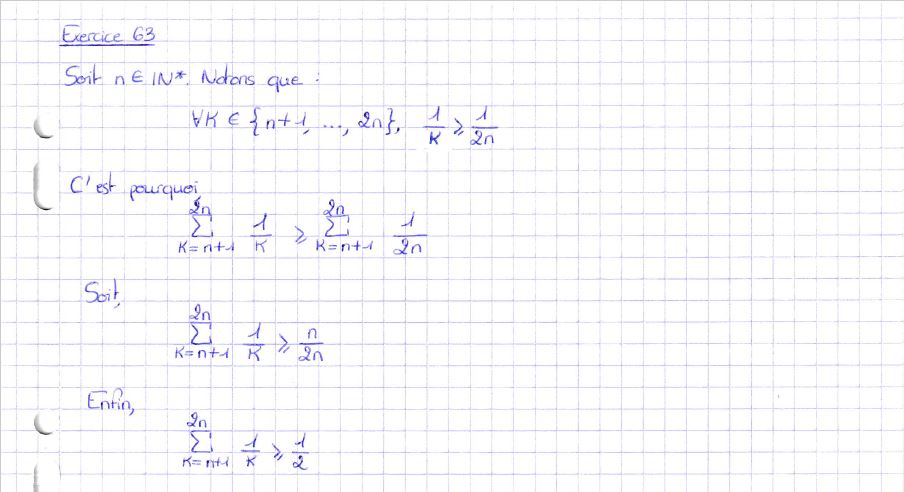 Exercice 63
Soit n ∈ IN*. Notons que :
∀K ∈ {n+1, ..., 2n}, 1/K ⩾ 1/2n
C'est pourquoi,
∑_{K=n+1}^{2n} 1/K ⩾ ∑_{K=n+1}^{2n} 1/2n
Soit,
∑_{K=n+1}^{2n} 1/K ⩾ n/2n
Enfin,
∑_{K=n+1}^{2n} 1/K ⩾ 1/2